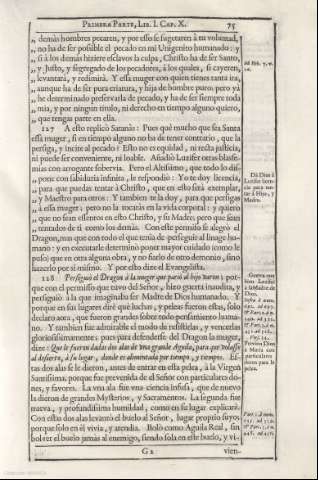 PRIMERA PARTE, LIB. I. CAP. X. 75
„ demàs hombres pecaren, y por esso se sugetaren à tu voluntad,
„ no ha de ser posible el pecado en mi Unigenito humanado: y
„ si à los demàs hiziere esclavos la culpa, Christo ha de ser Santo,
„ y Justo, y segregado de los pecadores, à los quales, si cayeren,
„ levantarà, y redimirà. Y essa muger con quien tienes tanta ira,
„ aunque ha de ser pura criatura, y hija de hombre puro; pero yà
„ he determinado preservarla de pecado, y ha de ser siempre toda
„ mia, y por ningun titulo, ni derecho en tiempo alguno quiero,
„ que tengas parte en ella.
127 A esto replicò Satanàs: Pues què mucho que sea Santa
essa muger, si en tiempo alguno no ha de tener contrario, que la
persiga, y incite al pecado? Esto no es equidad, ni recta justicia,
ni puede ser conveniente, ni loable. Añadiò Luzifer otras blasfe-
mias con arrogante sobervia. Pero el Altissimo, que todo lo dis-
pone con sabiduria infinita, le respondiò: Yo te doy licencia,
para que puedas tentar à Christo, que en esto serà exemplar,
y Maestro para otros: Y tambien te la doy, para que persigas
à essa muger; pero no la tocaràs en la vida corporal: y quiero
que no sean essentos en esto Christo, y su Madre, pero que sean
tentados de ti como los demàs. Con este permisso se alegrò el
Dragon, mas que con todo el que tenia de perseguir al linage hu-
mano: y en executarle determinò poner mayor cuidado (como le
puso) que en otra alguna obra, y no fiarlo de otro demonio, sino
hazerlo por si mismo. Y por esto dize el Evangelista.
128 Persiguiò el Dragon à la muger que pariò al hijo varon: por-
que con el permisso que tuvo del Señor, hizo guerra inaudita, y
persiguiò à la que imaginaba ser Madre de Dios humanado. Y
porque en sus lugares dirè què luchas, y peleas fueron estas, solo
declaro aora, que fueron grandes sobre todo pensamiento huma-
no. Y tambien fue admirable el modo de resistirlas, y vencerlas
gloriosissimamente: pues para defenderse del Dragon la muger,
dize: Que le fueron dadas dos alas de una grande Aguila, para que volasse
al desierto, à su lugar, donde es alimentada por tiempo, y tiempos. Es-
tas dos alas se le dieron, antes de entrar en esta pelea, à la Virgen
Santissima, porque fue prevenida de el Señor con particulares do-
nes, y favores. La una ala fue una ciencia infusa, que de nuevo
la dieron de grandes Mysterios, y Sacramentos. La segunda fue
nueva, y profundissima humildad, como en su lugar explicarè.
Con estas dos alas levantò el buelo al Señor, lugar proprio suyo;
porque solo en èl vivia, y atendia. Bolò como Aguila Real, sin
bolver el buelo jamàs al enemigo, siendo sola en este buelo, y vi-
G 2 vien-
Dà Dios à
Luzifer licen-
cia para ten-
tar à Hijo, y
Madre.